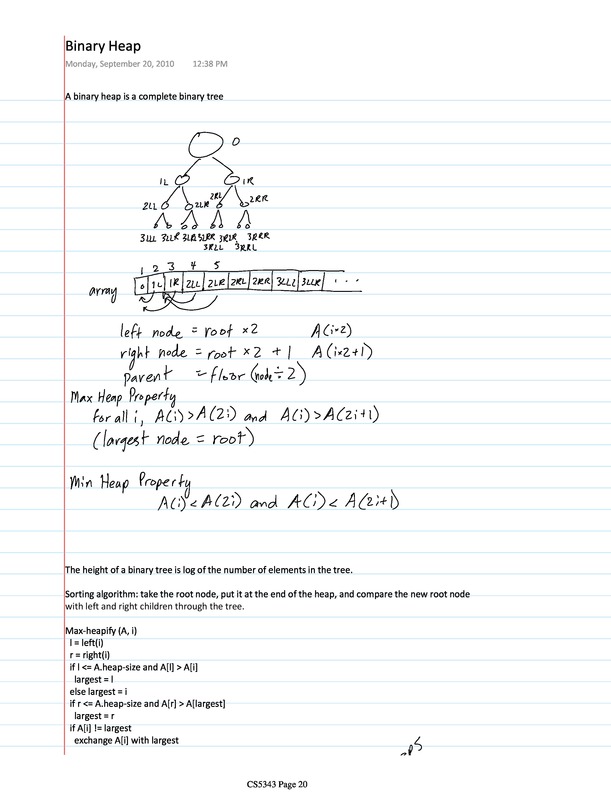 Binary Heap
Monday, September 20, 2010 12:38 PM
A binary heap is a complete binary tree
0
1L 1R
2LL 2LR 2RL 2RR
3LLL 3LLR 3LRL 3LRR 3RLR 3RRR
3RLL 3RRL
1 2 3 4 5
array 0 1L 1R 2LL 2LR 2RL 2RR 3LLL 3LLR ...
left node = root x2 A(i*2)
right node = root x2 + 1 A(i*2+1)
parent = floor (node ÷ 2)
Max Heap Property
for all i, A(i) > A(2i) and A(i) > A(2i+1)
(largest node = root)
Min Heap Property
A(i) < A(2i) and A(i) < A(2i+1)
The height of a binary tree is log of the number of elements in the tree.
Sorting algorithm: take the root node, put it at the end of the heap, and compare the new root node
with left and right children through the tree.
Max-heapify (A, i)
l = left(i)
r = right(i)
if l <= A.heap-size and A[l] > A[i]
largest = l
else largest = i
if r <= A.heap-size and A[r] > A[largest]
largest = r
if A[i] != largest
exchange A[i] with largest
CS5343 Page 20